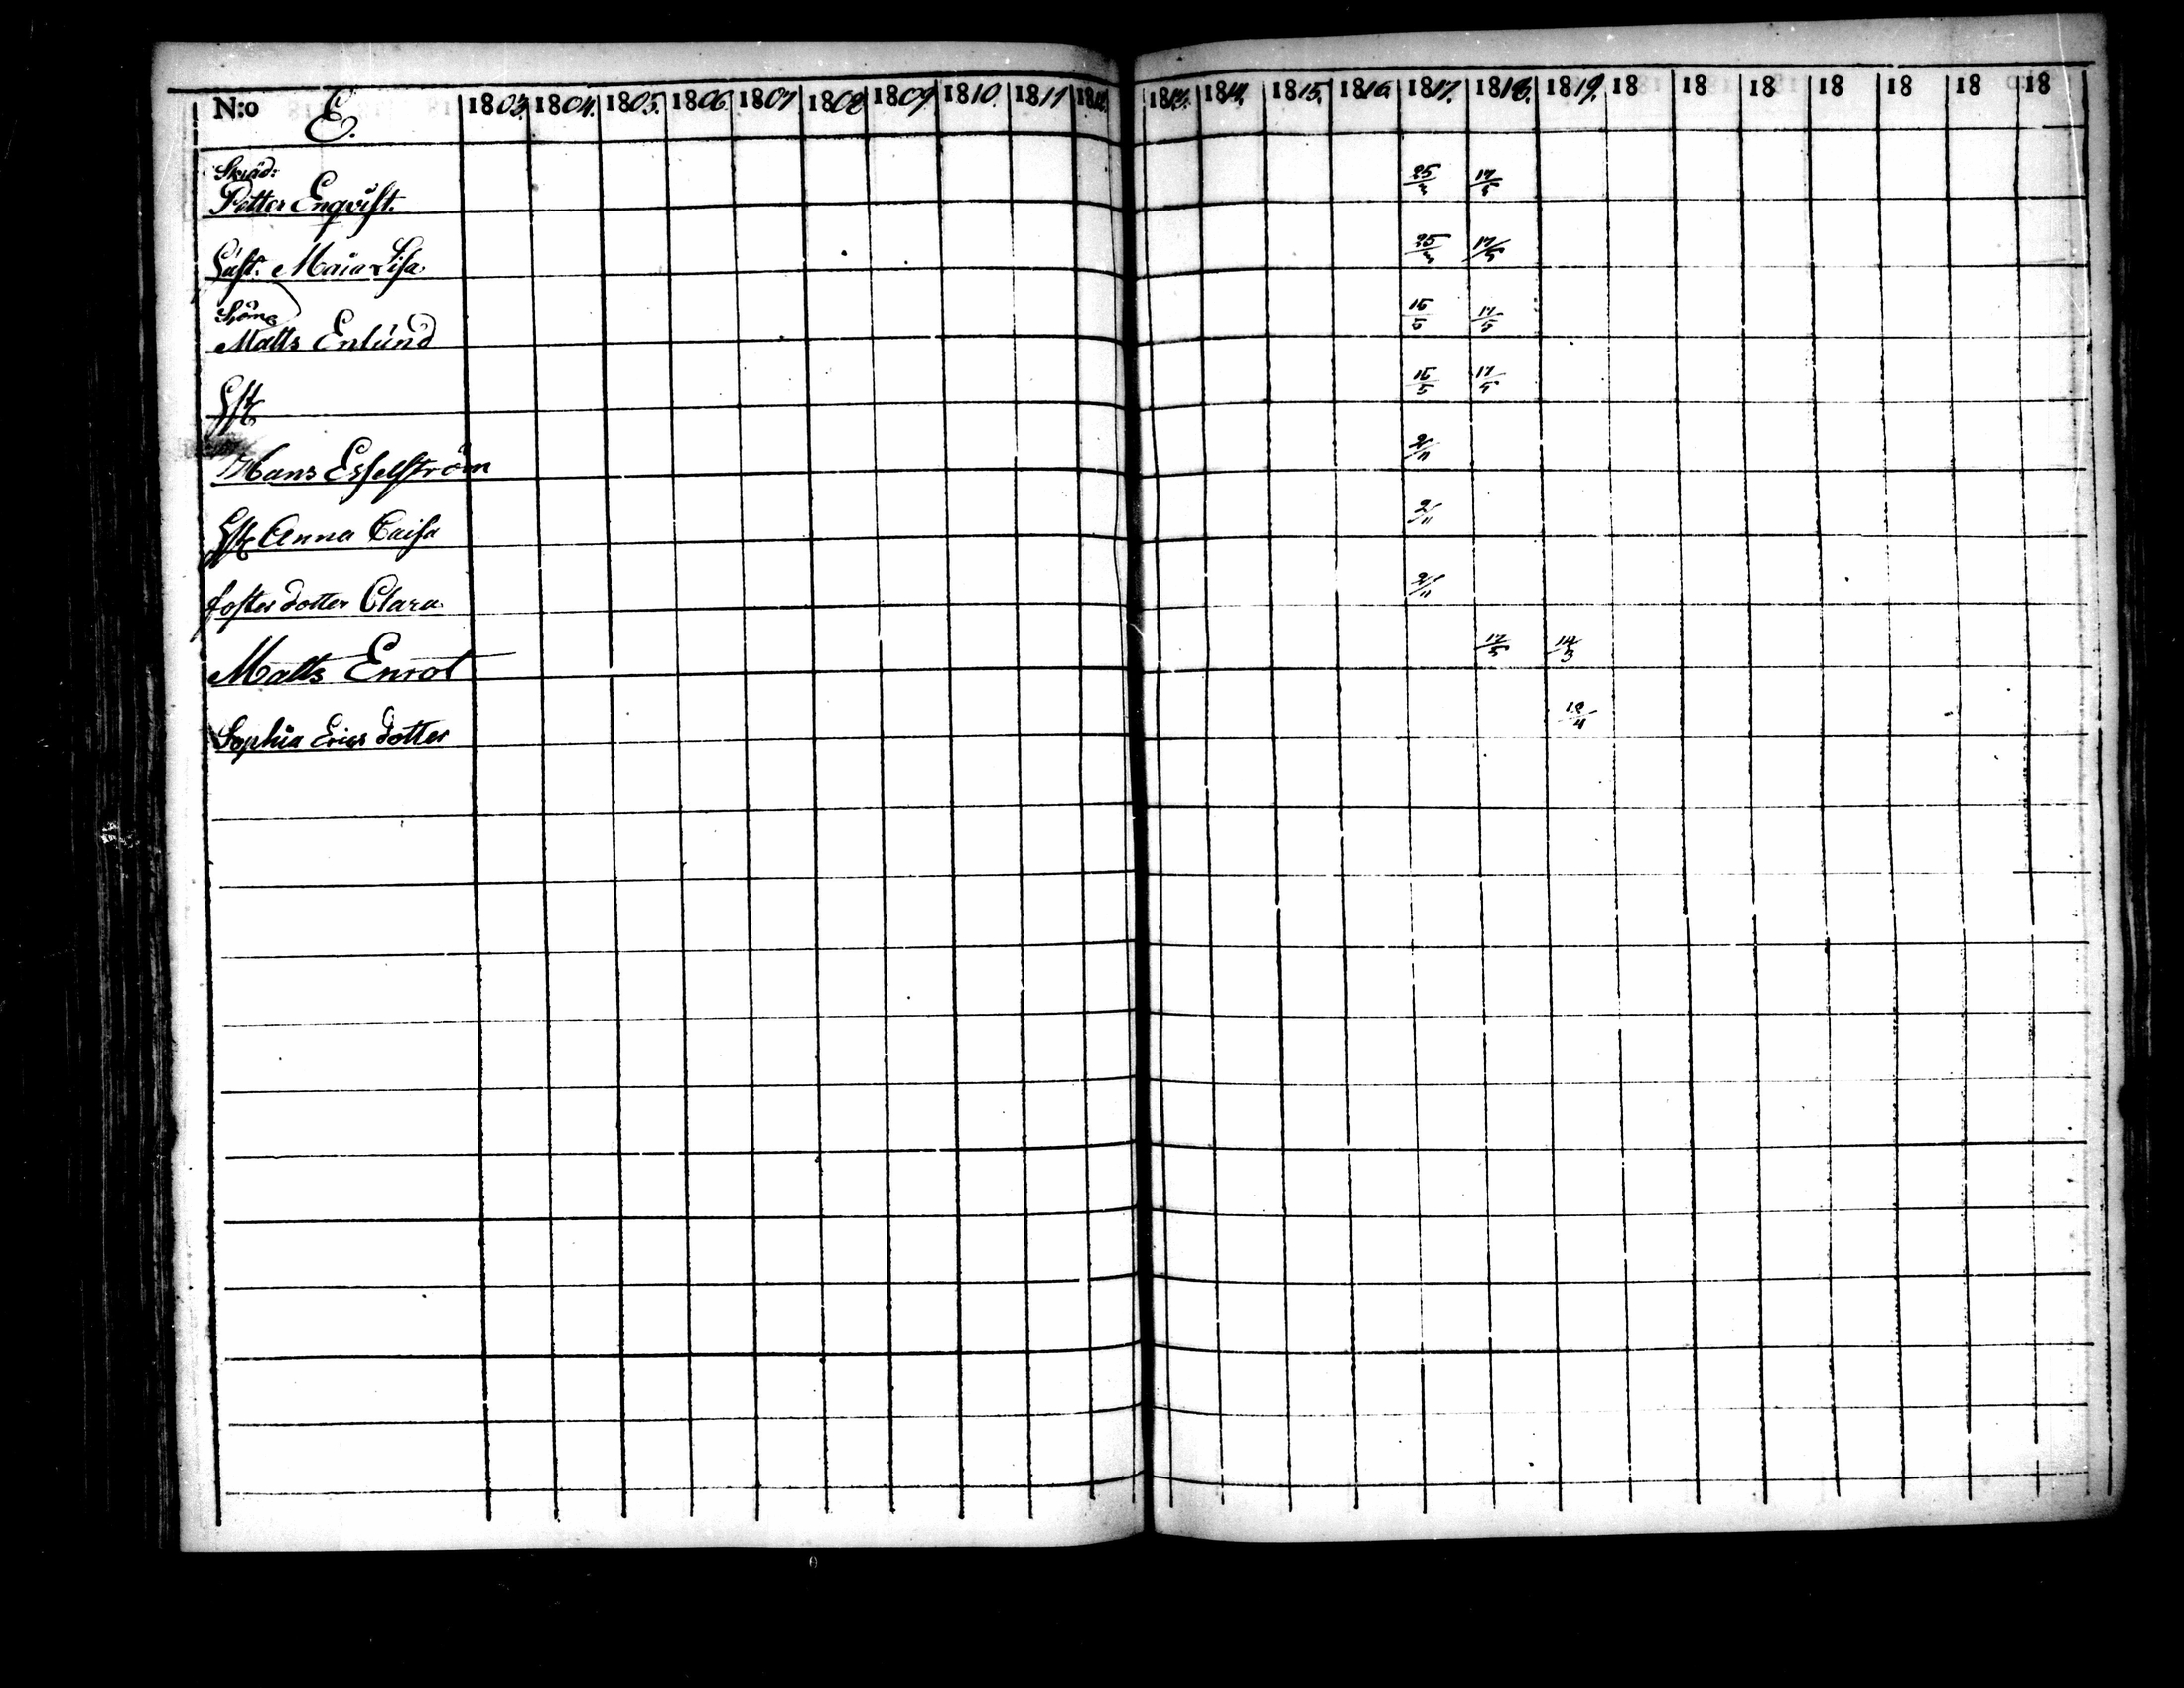 N:o E. 1803. 1804. 1805. 1806. 1807 1808 1809 1810. 1811 1812. 1813. 1814. 1815. 1816. 1817. 1818. 1819. 18 18 18 18 18 18 18
Skräd:
Petter Enqvist. 25/3 17/5
Hust. Maia Lisa 25/3 17/5
Matts Enlund 15/5 17/5
Hst 15/5 17/5
Hans Esselström 2/11
Hst Anna Caisa 2/11
foster dotter Clara 2/11
Matts Enrot 17/5 14/3
Sophia Erics dotter 12/4